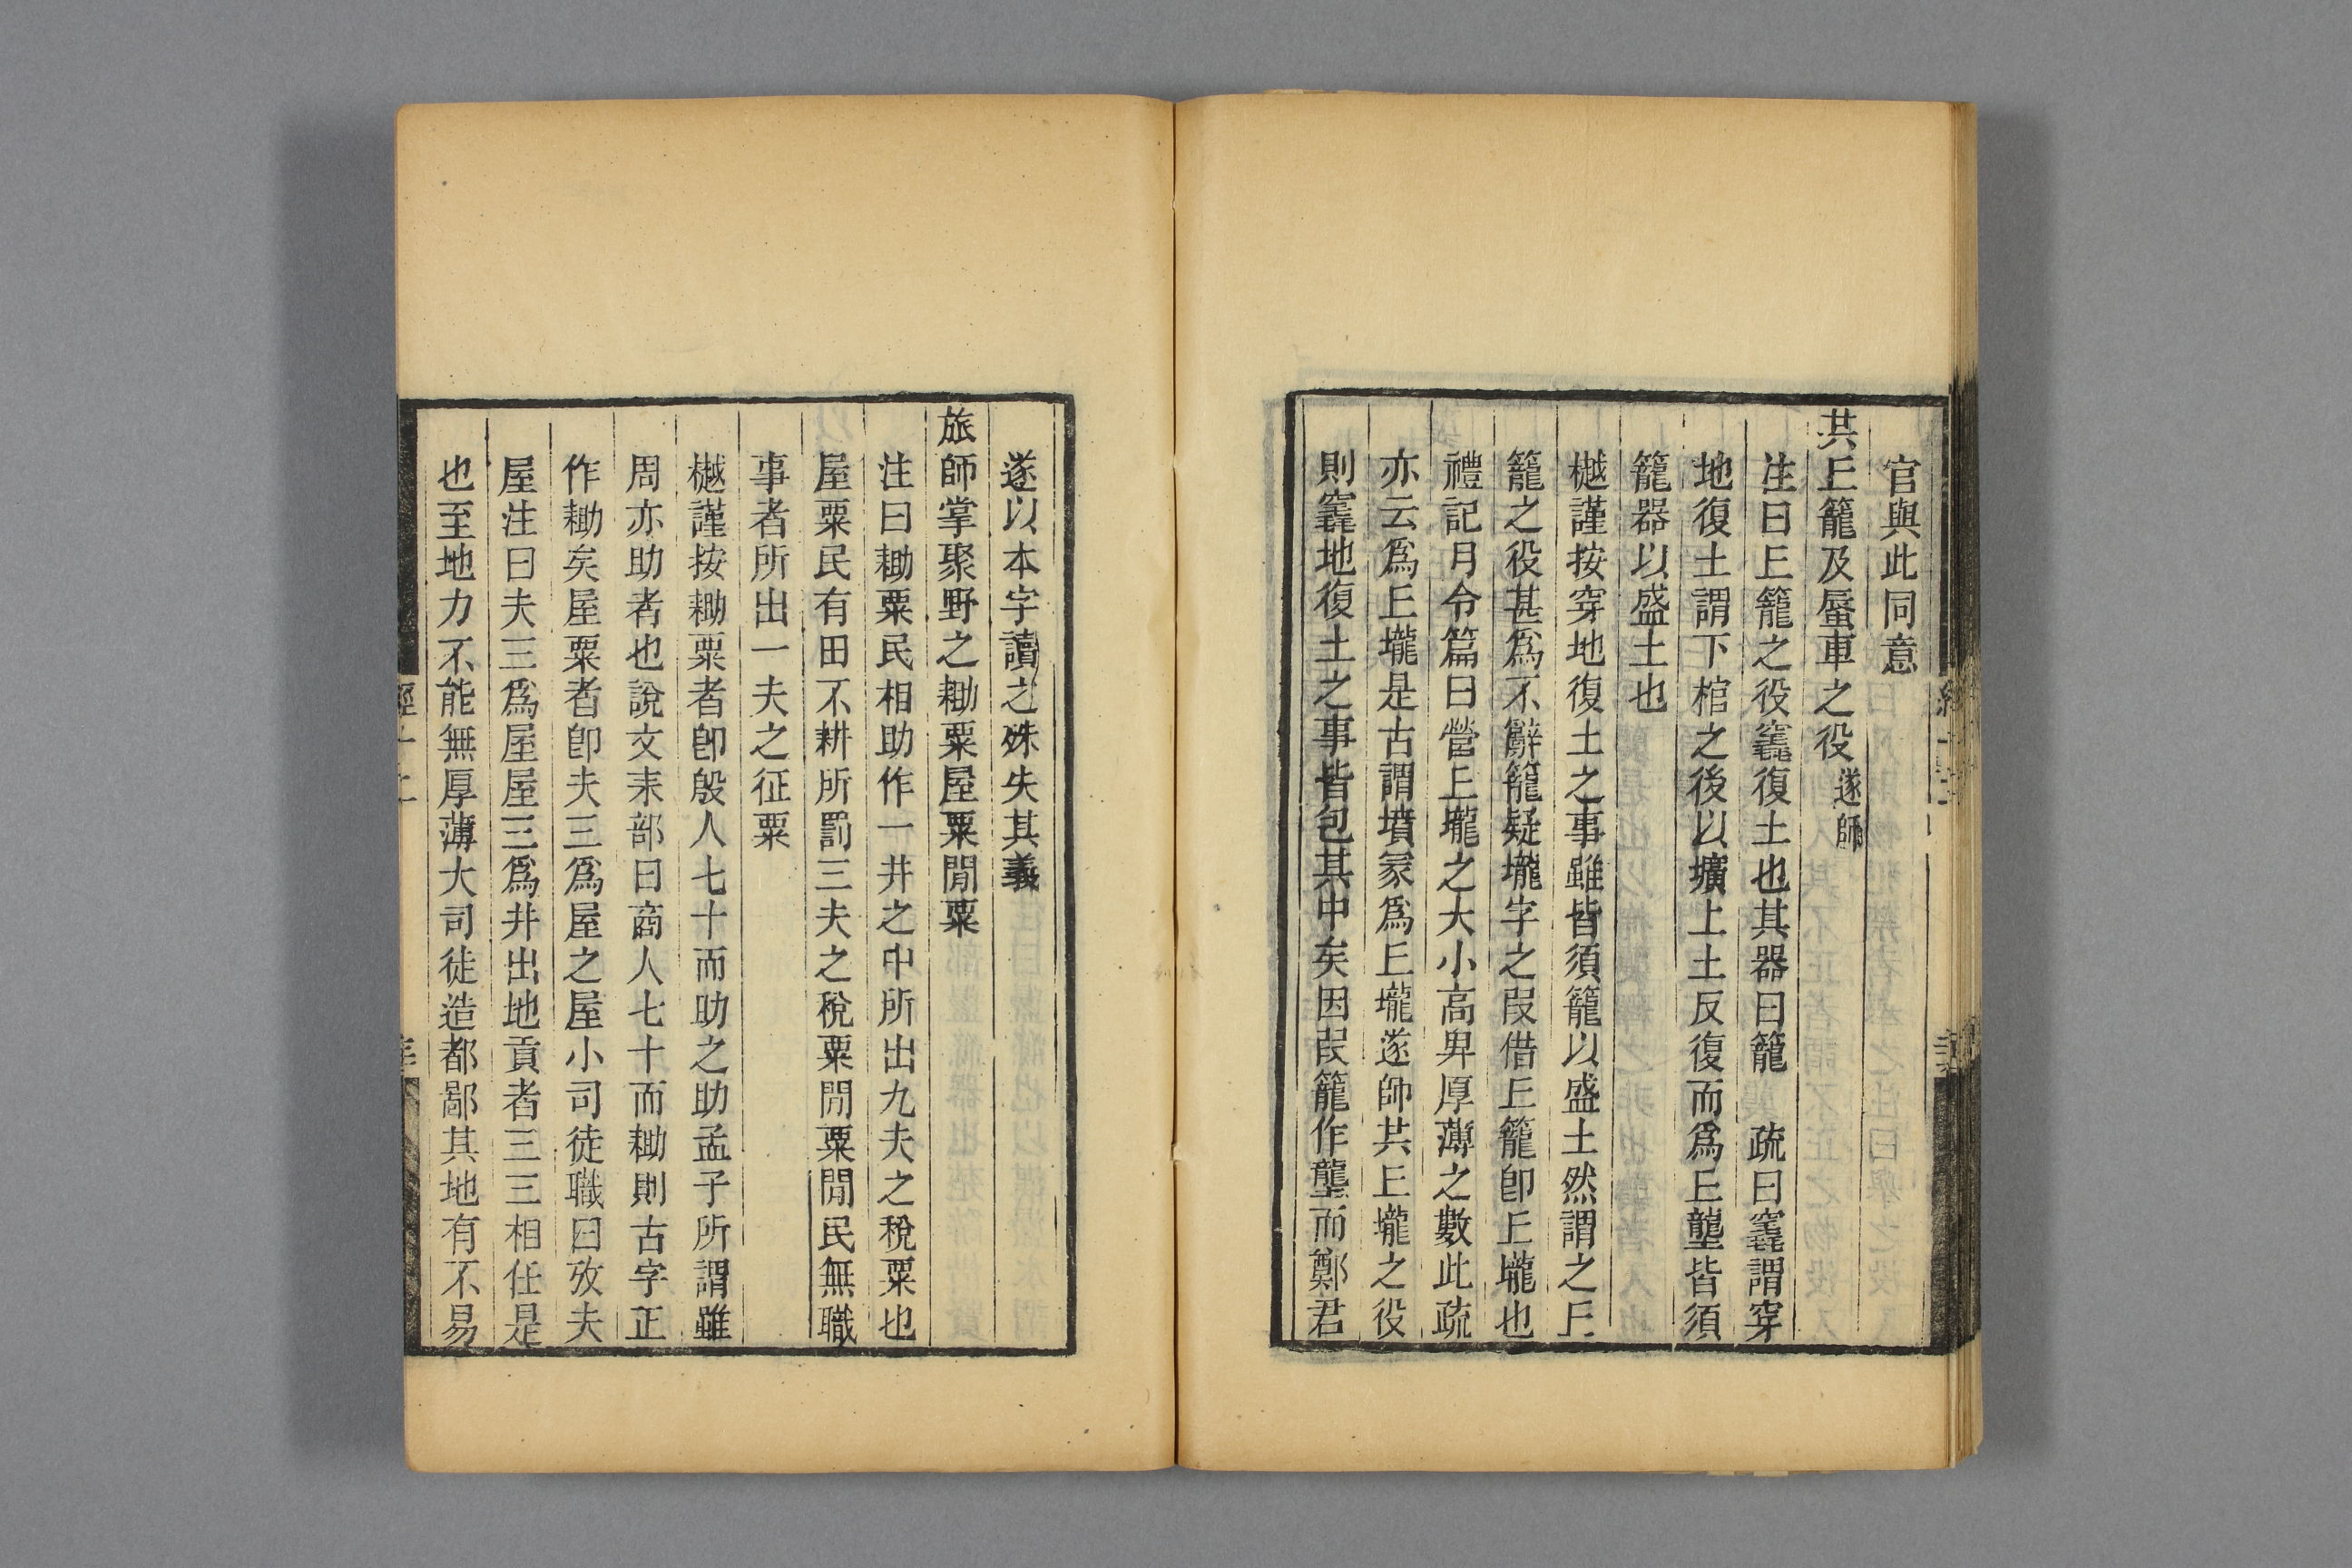 官與此同意
共𠀉籠及蜃車之役遂師
注曰𠀉籠之役竁復土也其器曰籠　疏曰竁謂穿
地復土謂下棺之後以壙上土反復而爲𠀉壟皆須
籠器以盛土也
樾謹按穿地復土之事雖皆須籠以盛土然謂之𠀉
籠之役甚爲不辭籠疑壠字之叚借𠀉籠卽𠀉壠也
禮記月令篇曰營𠀉壠之大小高卑厚薄之數此疏
亦云爲𠀉壠是古謂墳冢爲𠀉壠遂師共𠀉壠之役
則竁地復土之事皆包其中矣因叚籠作壟而鄭君
遂以本字讀之殊失其義
旅師掌聚野之耡粟屋粟閒粟
注曰耡粟民相助作一井之中所出九夫之稅粟也
屋粟民有田不耕所罰三夫之稅粟閒粟閒民無職
事者所出一夫之征粟
樾謹按耡粟者卽殷人七十而助之助孟子所謂雖
周亦助者也說文耒部曰商人七十而耡則古字正
作耡矣屋粟者卽夫三爲屋之屋小司徒職曰攷夫
屋注曰夫三爲屋屋三爲井出地貢者三三相任是
也至地力不能無厚薄大司徒造都鄙其地有不易